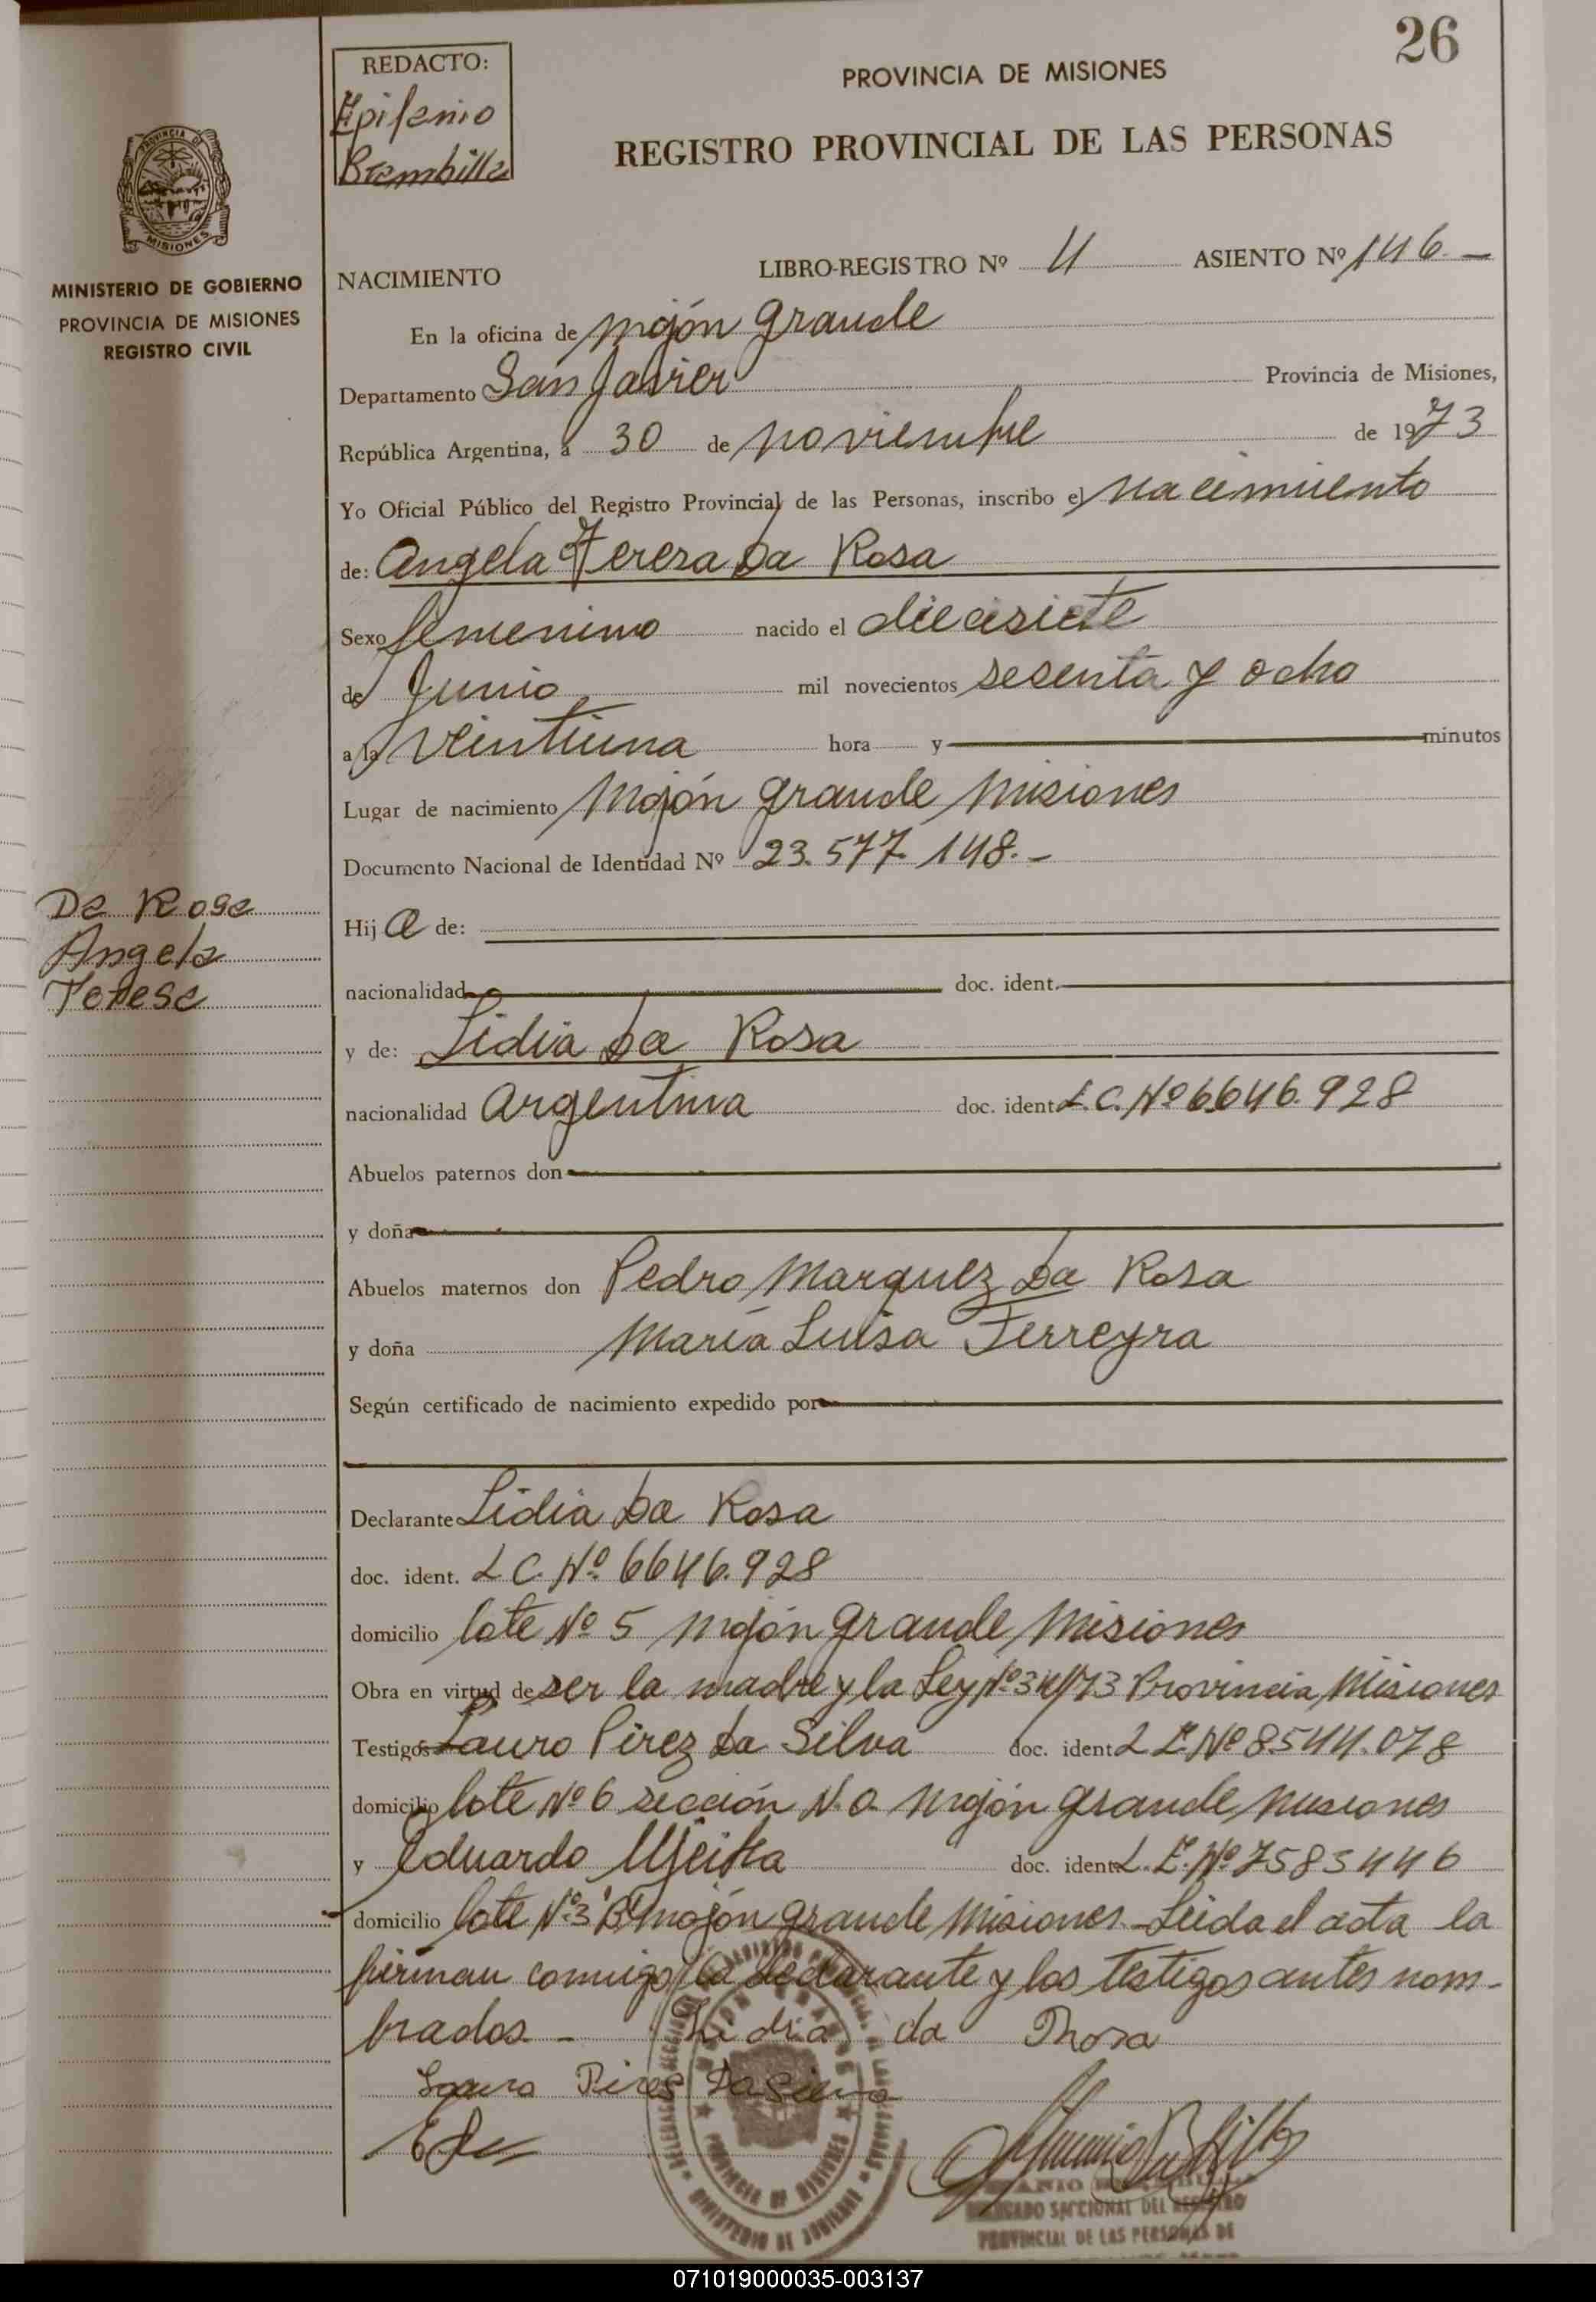 26
REDACTO:
Epifanio
Brambilla
PROVINCIA DE MISIONES
REGISTRO PROVINCIAL DE LAS PERSONAS
PROVINCIA DE
MISIONES
MINISTERIO DE GOBIERNO
PROVINCIA DE MISIONES
REGISTRO CIVIL
NACIMIENTO LIBRO-REGISTRO Nº 4 ASIENTO Nº 146.-
En la oficina de Mojón grande
Departamento San Javier Provincia de Misiones,
República Argentina, a 30 de noviembre de 1973
Yo Oficial Público del Registro Provincial de las Personas, inscribo el nacimiento
de: Angela Teresa Da Rosa
Sexo femenino nacido el diecisiete
de Junio mil novecientos sesenta y ocho
a la veintiuna hora y minutos
Lugar de nacimiento Mojón grande Misiones
Documento Nacional de Identidad Nº 23.577.148.-
Da Rosa
Angela
Teresa
Hija de:
nacionalidad doc. ident.
y de: Lidia Da Rosa
nacionalidad Argentina doc. ident. L.C. Nº 6646.928
Abuelos paternos don
y doña
Abuelos maternos don Pedro Marquez Da Rosa
y doña María Luisa Ferreyra
Según certificado de nacimiento expedido por
Declarante Lidia Da Rosa
doc. ident. L C. Nº 6646.928
domicilio lote Nº 5 Mojón grande Misiones
Obra en virtud de ser la madre y la Ley Nº 34/73 Provincia Misiones
Testigos Lauro Pirez Da Silva doc. ident. L E. Nº 8544.078
domicilio lote Nº 6 sección N.O. Mojón grande Misiones
y Eduardo doc. ident. L.E. Nº 7583446
domicilio lote Nº 3 "B" Mojón grande Misiones - Leida el acta la
firman conmigo la declarante y los testigos antes nom-
brados - Lidia da Rosa
Lauro Pires Da Silva
SECCIONAL DEL REGISTRO
PROVINCIAL DE LAS PERSONAS DE
PROVINCIA DE MISIONES
MINISTERIO DE GOBIERNO
071019000035-003137